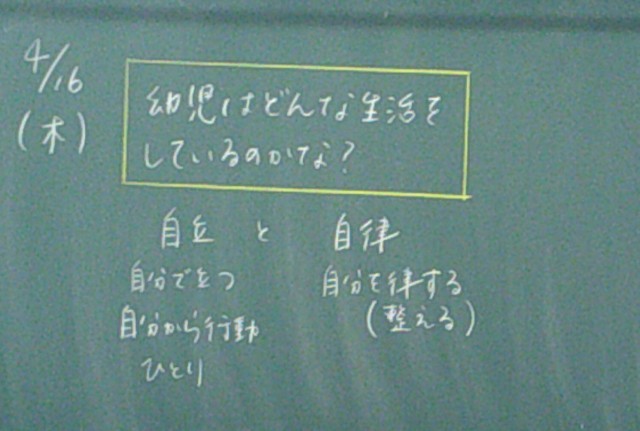 4/16
(木)
幼児はどんな生活を
しているのかな?
自立 と 自律
自分で立つ
自分を律する
自分から行動
(整える)
ひとり